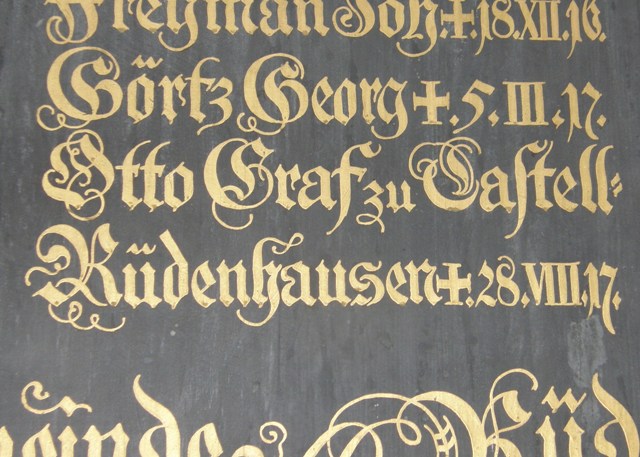 Freyman Joh. +. 18. XII. 16.
Görtz Georg +. 5. III. 17.
Otto Graf zu Castell-
Rüdenhausen +. 28. VIII. 17.